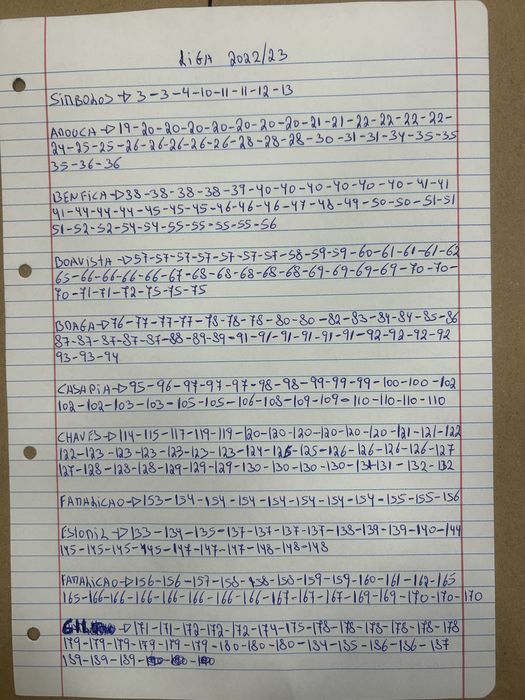 LIGA 2022/23
SIMBOLOS → 3-3-4-10-11-11-12-13
AROUCA → 19-20-20-20-20-20-20-20-21-21-22-22-22-22-
24-25-25-26-26-26-26-26-28-28-28-30-31-31-34-35-35
35-36-36
BENFICA → 38-38-38-38-39-40-40-40-40-40-40-41-41
41-44-44-44-45-45-45-46-46-46-47-48-49-50-50-51-51
51-52-52-54-54-55-55-55-55-56
BOAVISTA → 57-57-57-57-57-57-57-58-59-59-60-61-61-61-62
65-66-66-66-66-67-68-68-68-68-68-69-69-69-69-70-70-
70-71-71-72-75-75-75
BRAGA → 76-77-77-77-78-78-78-80-80-82-83-84-84-85-86
87-87-87-87-87-88-89-89-91-91-91-91-91-91-92-92-92-92
93-93-94
CASA PIA → 95-96-97-97-97-98-98-99-99-99-100-100-102
102-102-103-103-105-105-106-108-109-109-110-110-110-110
CHAVES → 114-115-117-119-119-120-120-120-120-120-120-121-121-122
122-123-123-123-123-123-123-124-125-125-126-126-126-126-127
127-128-128-128-129-129-129-130-130-130-130-130-131-131-132-132
FAMALICAO → 153-154-154-154-154-154-154-154-155-155-156
ESTORIL → 133-134-135-137-137-137-137-138-139-139-140-144
145-145-145-145-147-147-147-148-148-148
FAMALICAO → 156-156-157-158-158-158-159-159-160-161-162-165
165-166-166-166-166-166-166-166-167-167-167-169-169-170-170-170
→ 171-171-172-172-172-174-175-178-178-178-178-178-178
179-179-179-179-179-179-180-180-180-184-185-186-186-187
189-189-189-190-190-190